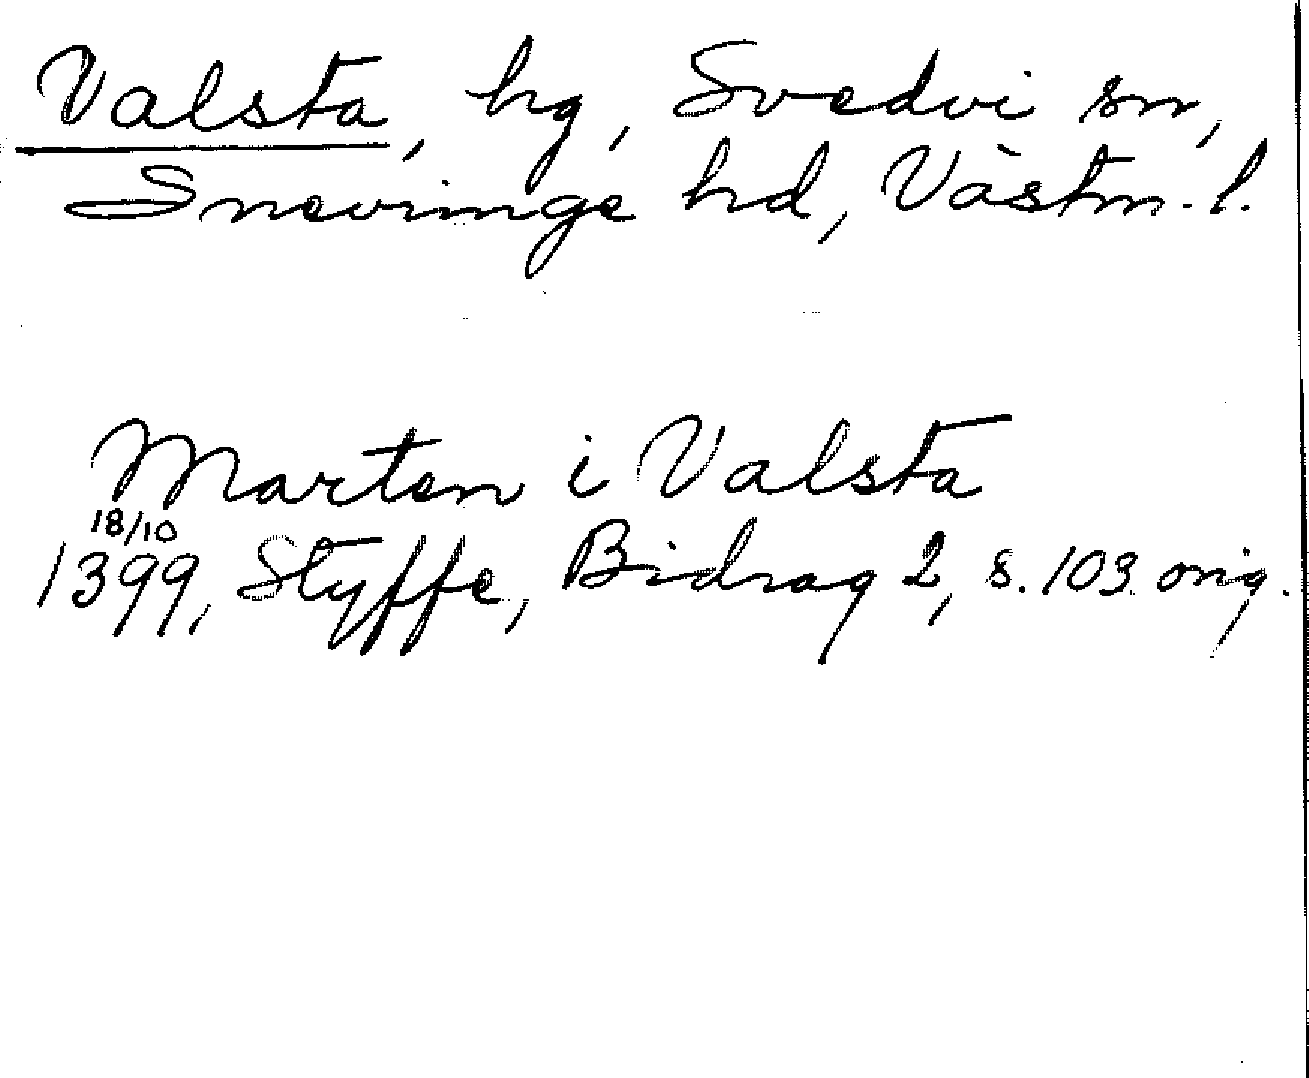 Valsta, hg, Svedvi sn,
Snevringe hd, Västm. l.
Marten i Valsta
18/10
1399, Styffe, Bidrag 2, s. 103 orig.